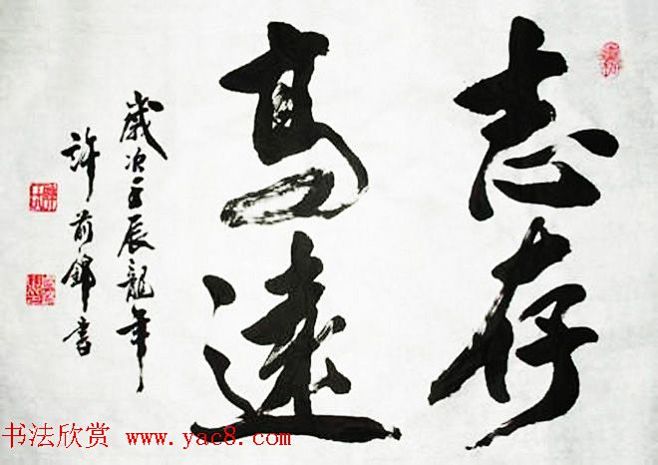 志存
高遠
歲次壬辰龍年
許前錦書
书法欣赏 www.yac8.com